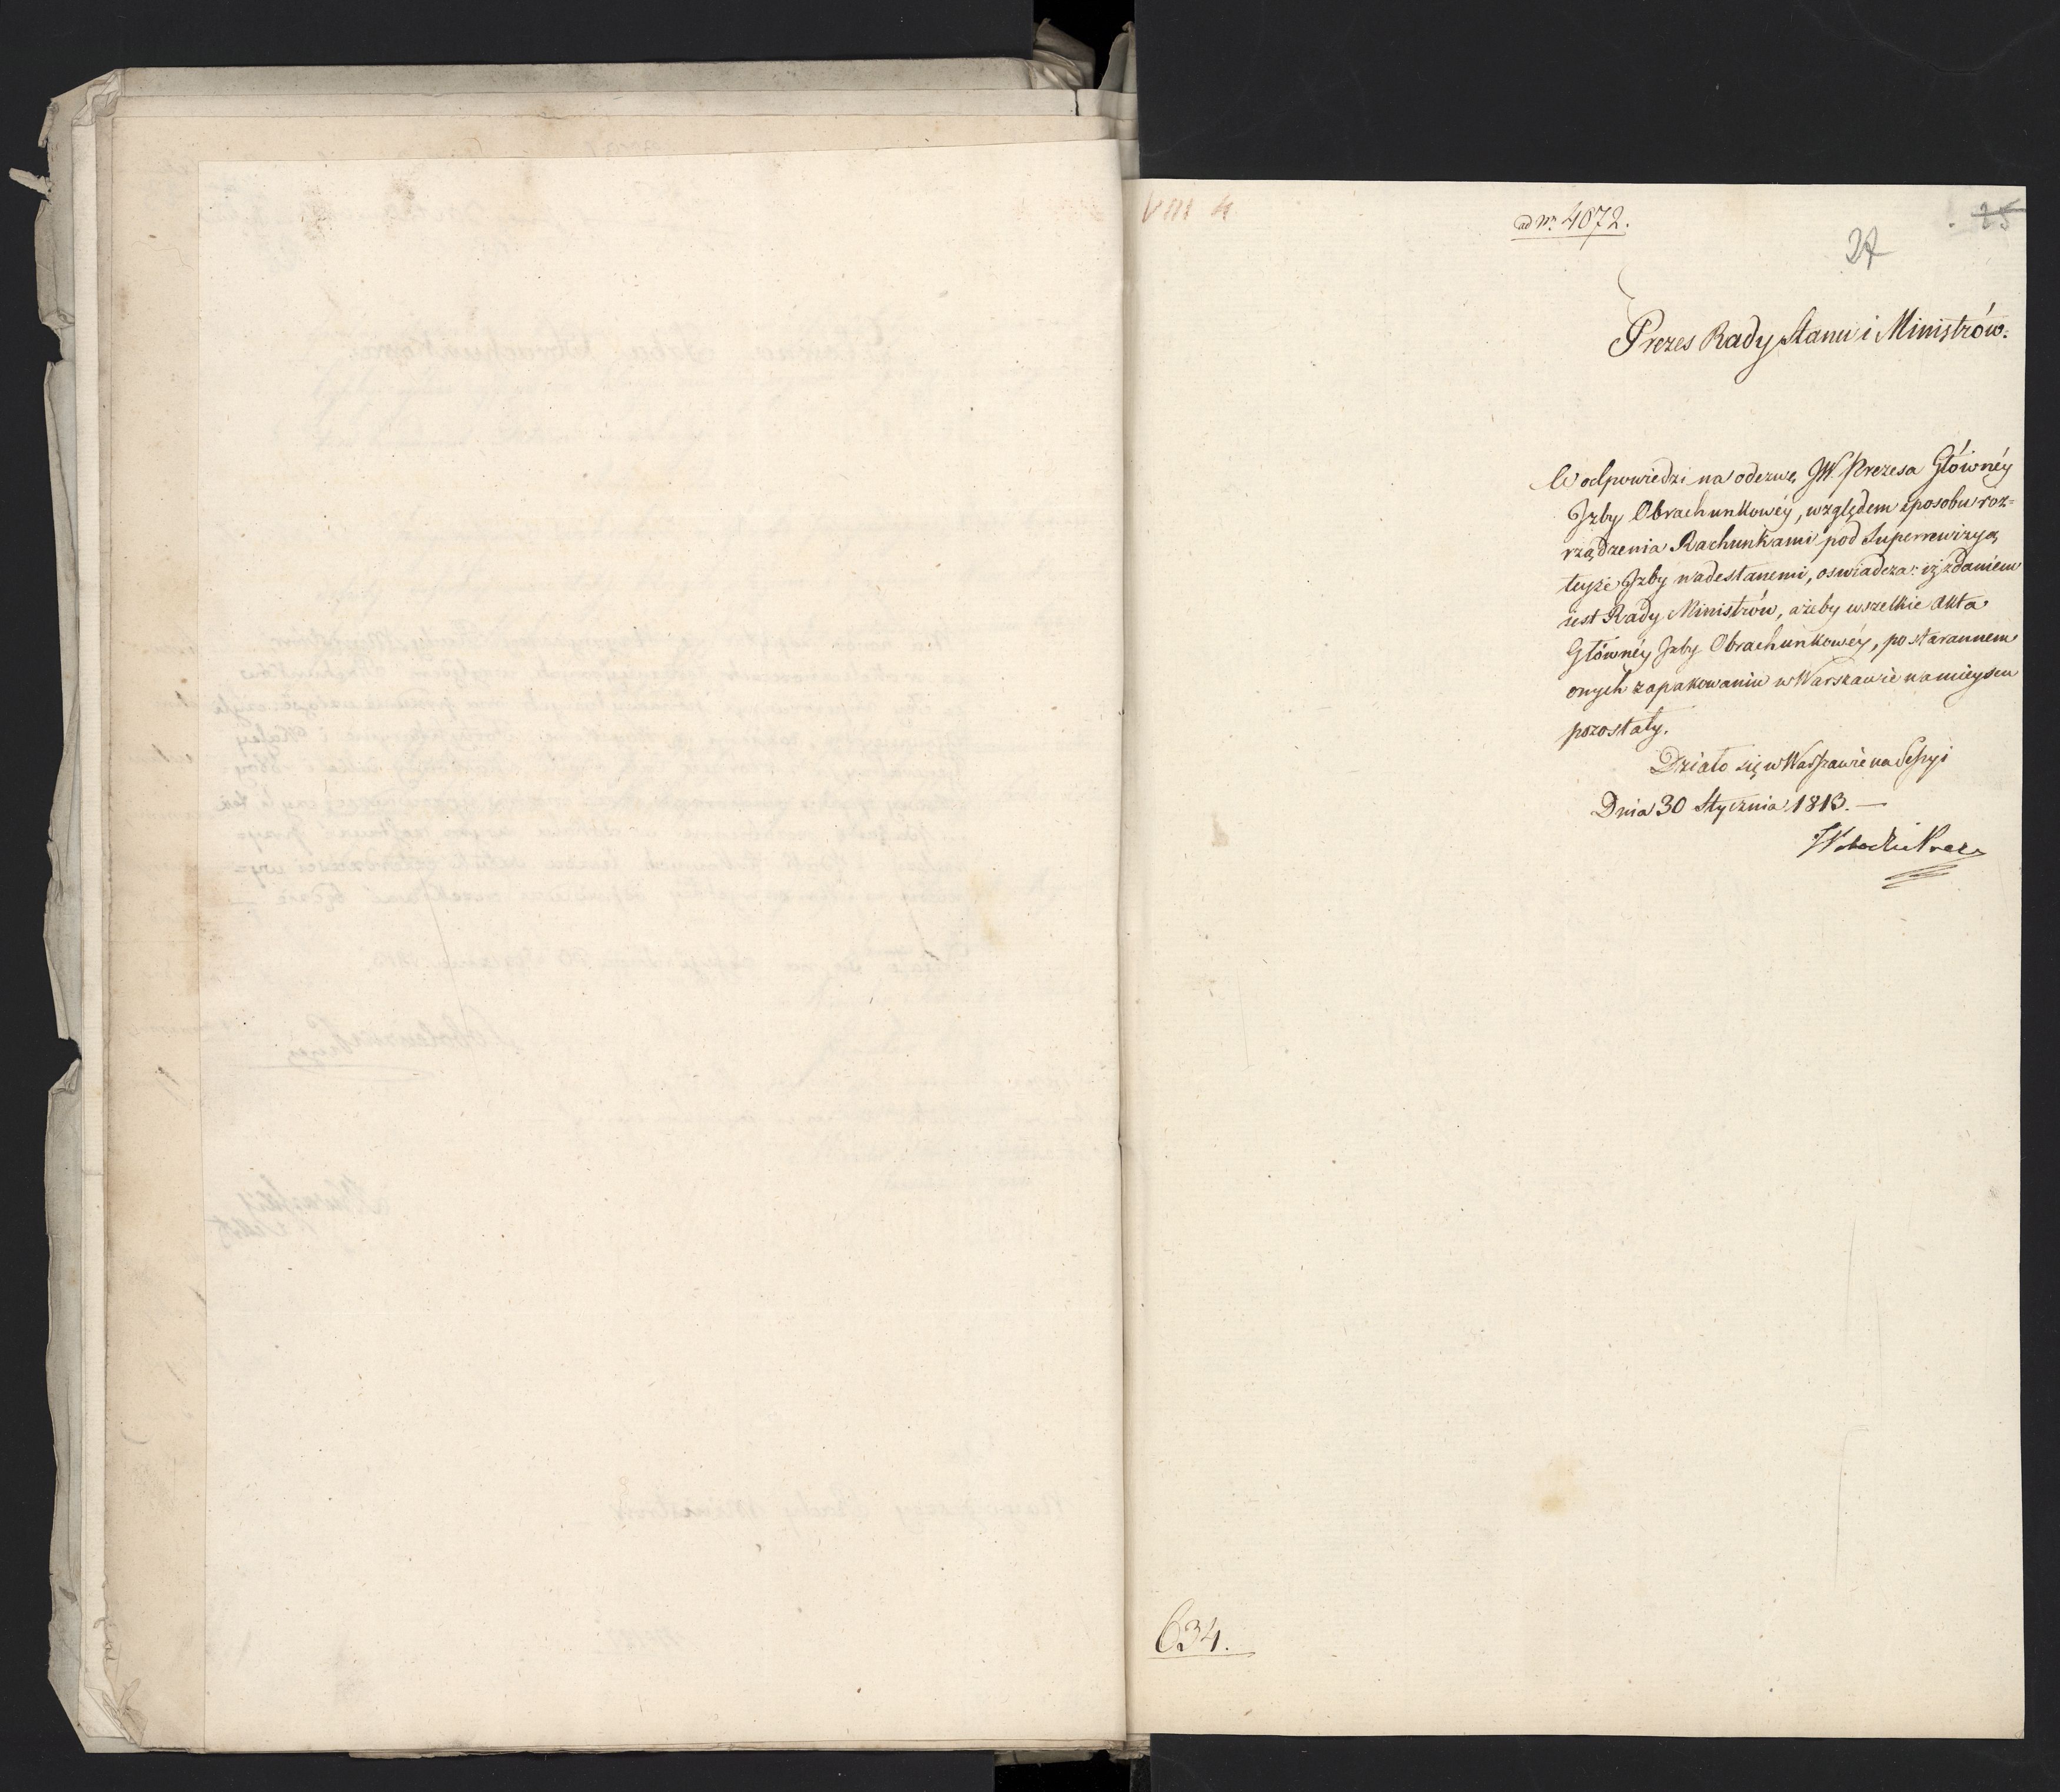 VIII 4
ad Nr. 4872.
25
27
Prezes Rady Stanu i Ministrów.
W odpowiedzi na odezwę JW. Prezesa Główney
Jzby Obrachunkowéy, względem sposobu roz=
rządzenia Rachunkami pod Superrewizyą
teyże Jzby nadesłanemi, oswiadcza: iż zdaniem
iest Rady Ministrów, ażeby wszelkie Akta
Główney Jzby Obrachunkowéy, po starannem
onych zapakowaniu w Warszawie na mieyscu
pozostały.
Działo się w Warszawie na Sessyi
Dnia 30 Stycznia 1813. —
634.